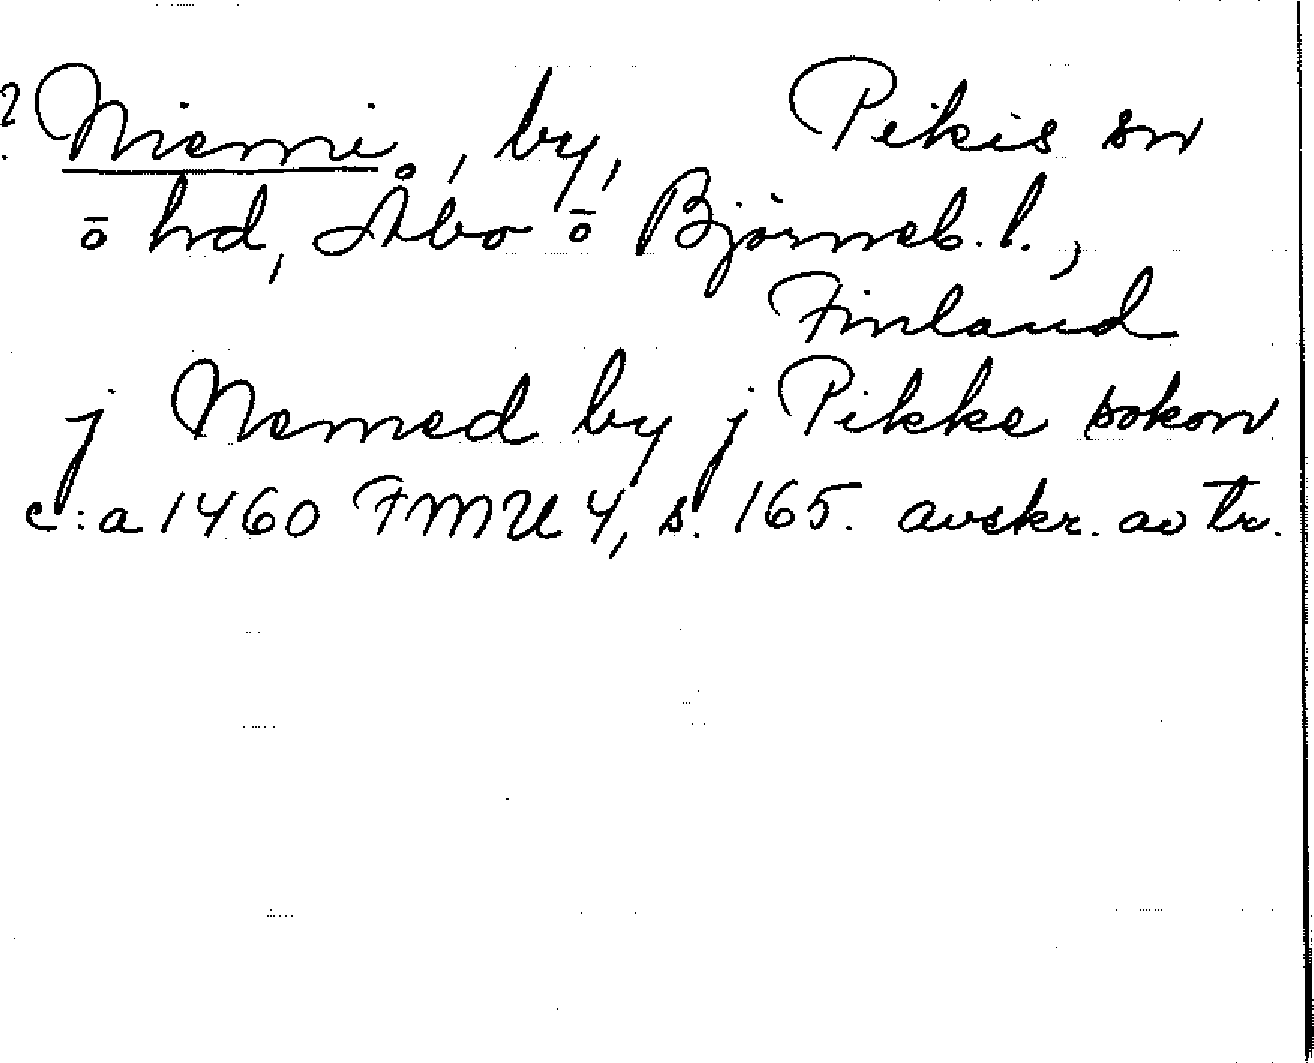 ? Niemi, by, Pikis sn
o hd, Åbo o Björneb. l.,
Finland
j Nemed by j Pikke sokon
c:a 1460 FMU 4, s. 165. avskr. av tr.